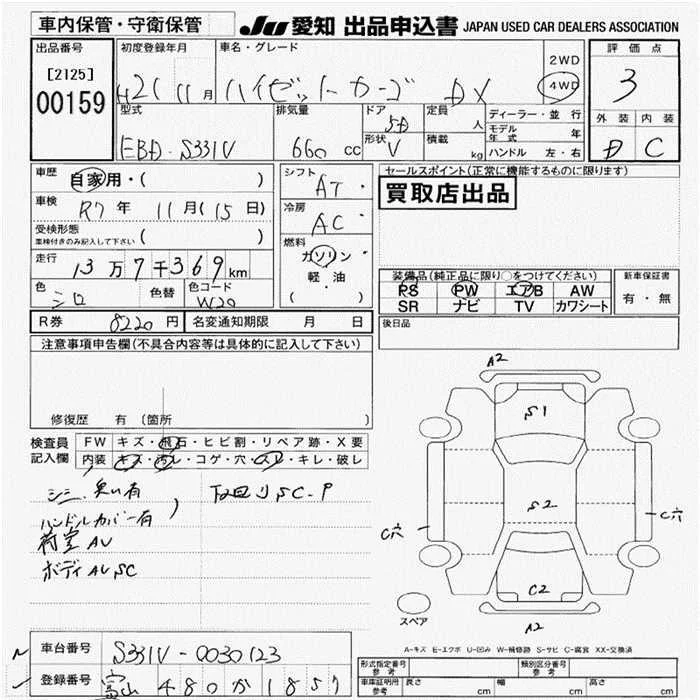 車内保管・守衛保管
JU 愛知 出品申込書 JAPAN USED CAR DEALERS ASSOCIATION
出品番号
[2125]
00159
初度登録年月
H21 11月
車名・グレード
ハイゼットカーゴ DX
2WD
4WD
評価点
3
外装 内装
D C
型式
EBD-S331V
排気量
660 cc
ドア
5D
形状
V
定員
人
積載
kg
ディーラー・並行
モデル年式 年
ハンドル 左・右
車歴 自家用・( )
車検 R7年 11月(15日)
受検形態
車検付きのみ記入して下さい ( )
走行
13万7千369km
色
シロ
色替
色コード
W20
シフト
AT
冷房
AC
燃料
ガソリン・
軽・油
( )
セールスポイント(正常に機能するものに限ります)
買取店出品
装備品(純正品に限り○をつけてください)
PS PW エアB AW
SR ナビ TV カワシート
新車保証書
有・無
R券 8220円 名変通知期限 月 日
後日品
注意事項申告欄(不具合内容等は具体的に記入して下さい)
修復歴 有〔箇所 〕
検査員記入欄
FW キズ・飛石・ヒビ割・リペア跡・X要
内装 キズ・汚レ・コゲ・穴・スレ・キレ・破レ
シミ、臭い有
下回りSC.P
ハンドルカバー有
荷室AU
ボディAUSC
A2
S1
S2
C穴
C穴
C2
A2
スペア
A-キズ E-エクボ U-凹み W-補修跡 S-サビ C-腐食 XX-交換済
車台番号 S331V-0030123
登録番号 富山 480 か 1857
形式指定番号 参考
類別区分番号 参考
車庫証明用 参考 長さ cm 幅 cm 高さ cm